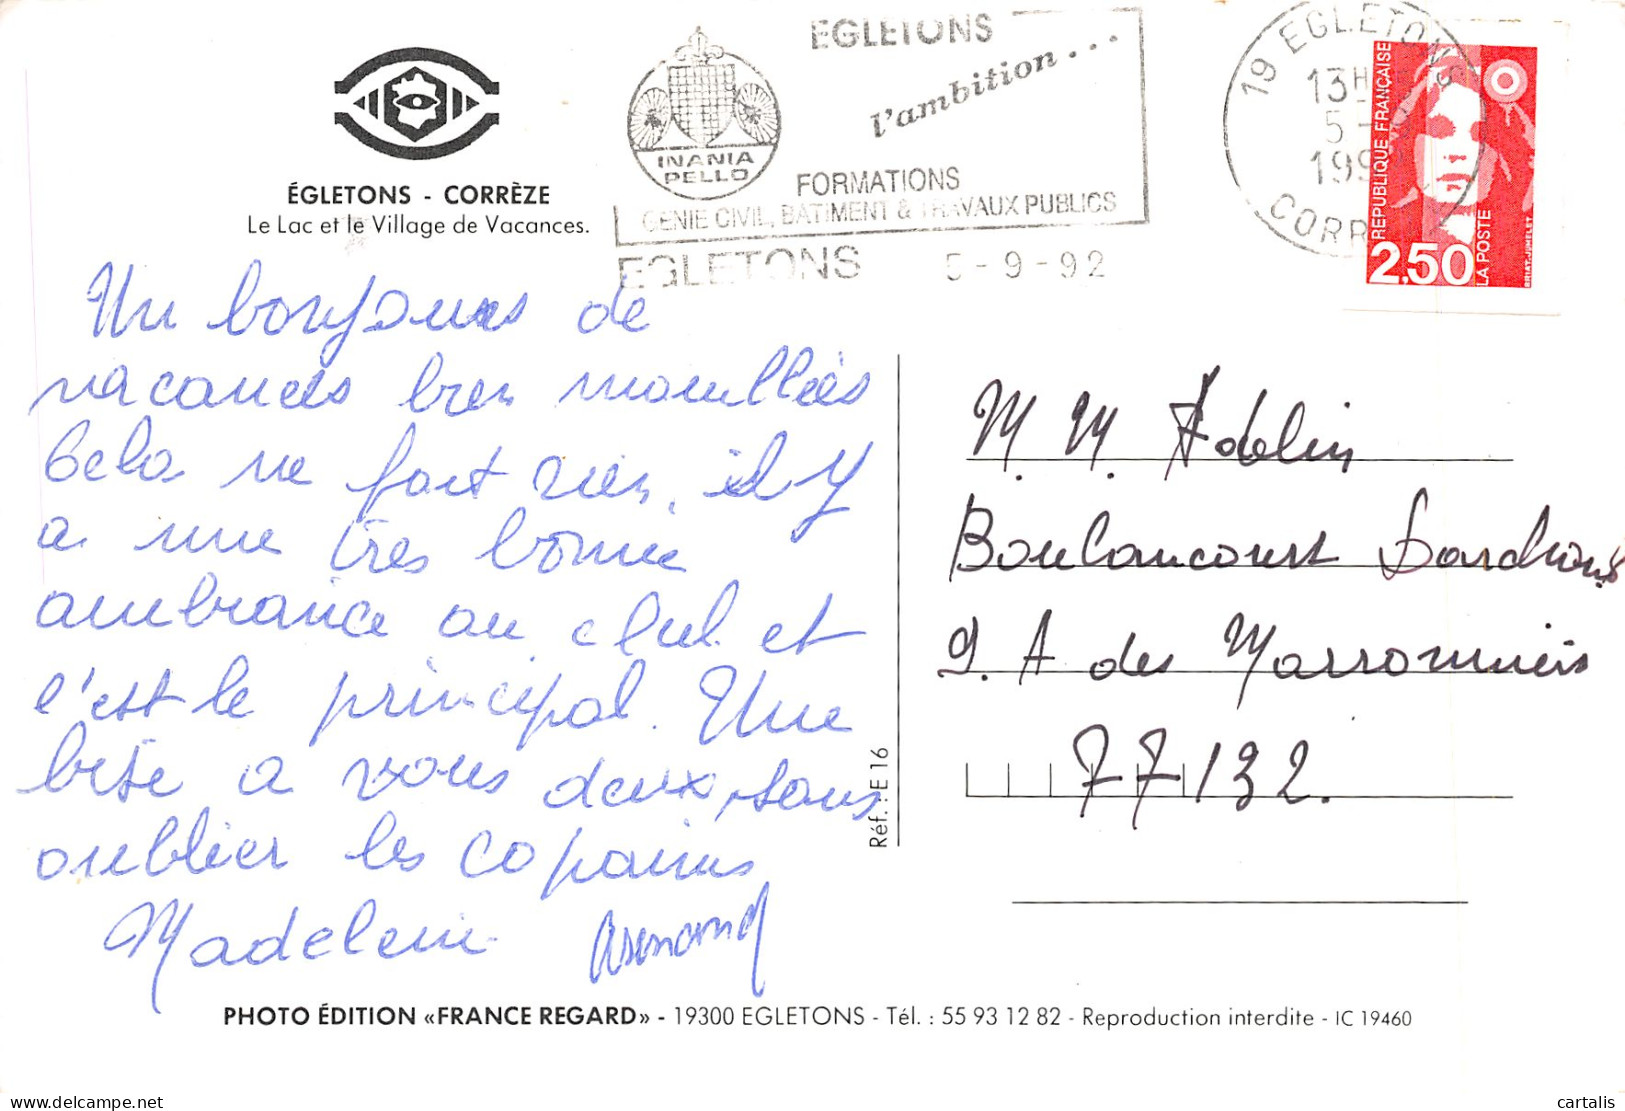 ÉGLETONS - CORRÈZE
Le Lac et le Village de Vacances.
EGLETONS
l'ambition...
INANIA
PELLO
FORMATIONS
GENIE CIVIL, BATIMENT & TRAVAUX PUBLICS
EGLETONS 5-9-92
19 EGLETONS
13H
5-
199
CORR
REPUBLIQUE FRANÇAISE
2,50
LA POSTE
BRIAT-JUMELET
Un bonjours de
vacances tres mouillées
Cela ne fait rien, il y
a une très bonne
ambiance au club et
c'est le principal. Une
bise a vous deux, sans
oublier les copains
Madeleine Armand
Réf. : E 16
M. M. Adelin
Boulancourt
9. A des Marronniers
77132.
PHOTO ÉDITION «FRANCE REGARD» - 19300 EGLETONS - Tél. : 55 93 12 82 - Reproduction interdite - IC 19460
cartalis
delcampe.net